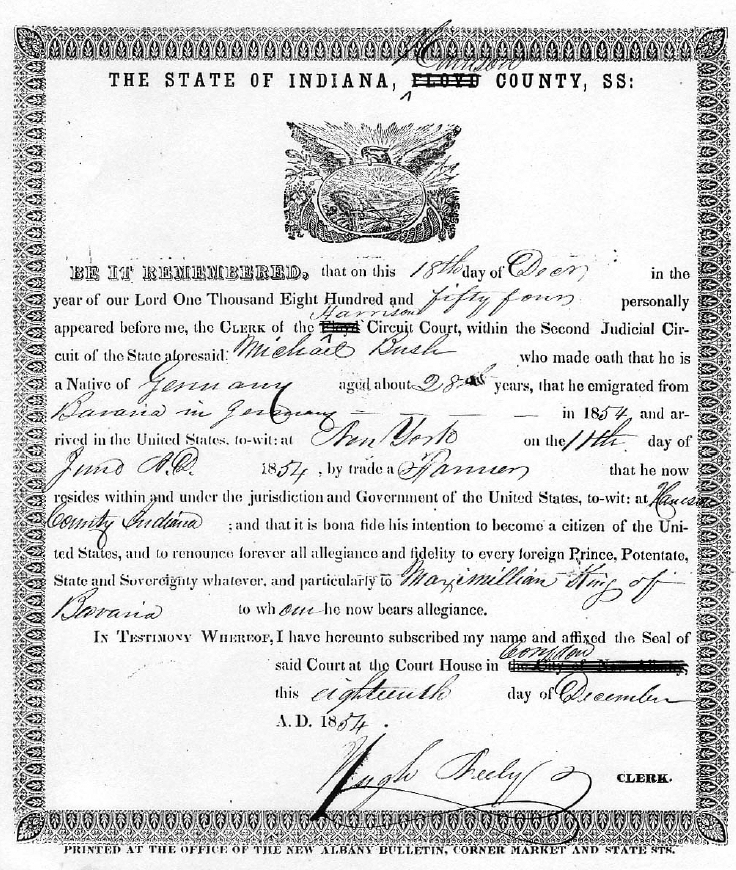 Harrison
THE STATE OF INDIANA, FLOYD COUNTY, SS:
BE IT REMEMBERED, that on this 18th day of Decr in the
year of our Lord One Thousand Eight Hundred and fifty four personally
Harrison
appeared before me, the CLERK of the Floyd Circuit Court, within the Second Judicial Cir-
cuit of the State aforesaid: Michael Bush who made oath that he is
a Native of Germany aged about 28 years, that he emigrated from
Bavaria in Germany — — — — — in 1854 and ar-
rived in the United States, to-wit: at New York on the 11th day of
June A.D. 1854, by trade a that he now
resides within and under the jurisdiction and Government of the United States, to-wit: at Harrison
County Indiana ; and that it is bona fide his intention to become a citizen of the Uni-
ted States, and to renounce forever all allegiance and fidelity to every foreign Prince, Potentate,
State and Sovereignty whatever, and particularly to Maximillian King of
Bavaria to whom he now bears allegiance.
IN TESTIMONY WHEREOF, I have hereunto subscribed my name and affixed the Seal of
Corydon
said Court at the Court House in the City of New Albany,
this eighteenth day of December
A. D. 1854.
Hugh CLERK.
PRINTED AT THE OFFICE OF THE NEW ALBANY BULLETIN, CORNER MARKET AND STATE STS.